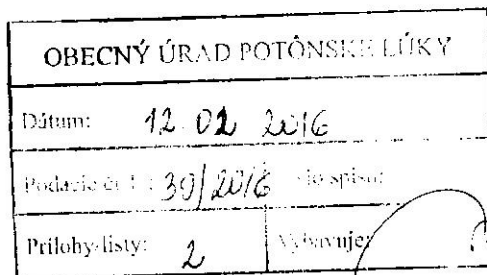 OBECNÝ ÚRAD POTÔNSKE LÚKY
Dátum: 12 02 2016
Podacie č 30/2016 spisu:
Prílohy-listy: 2 Vybavuje: